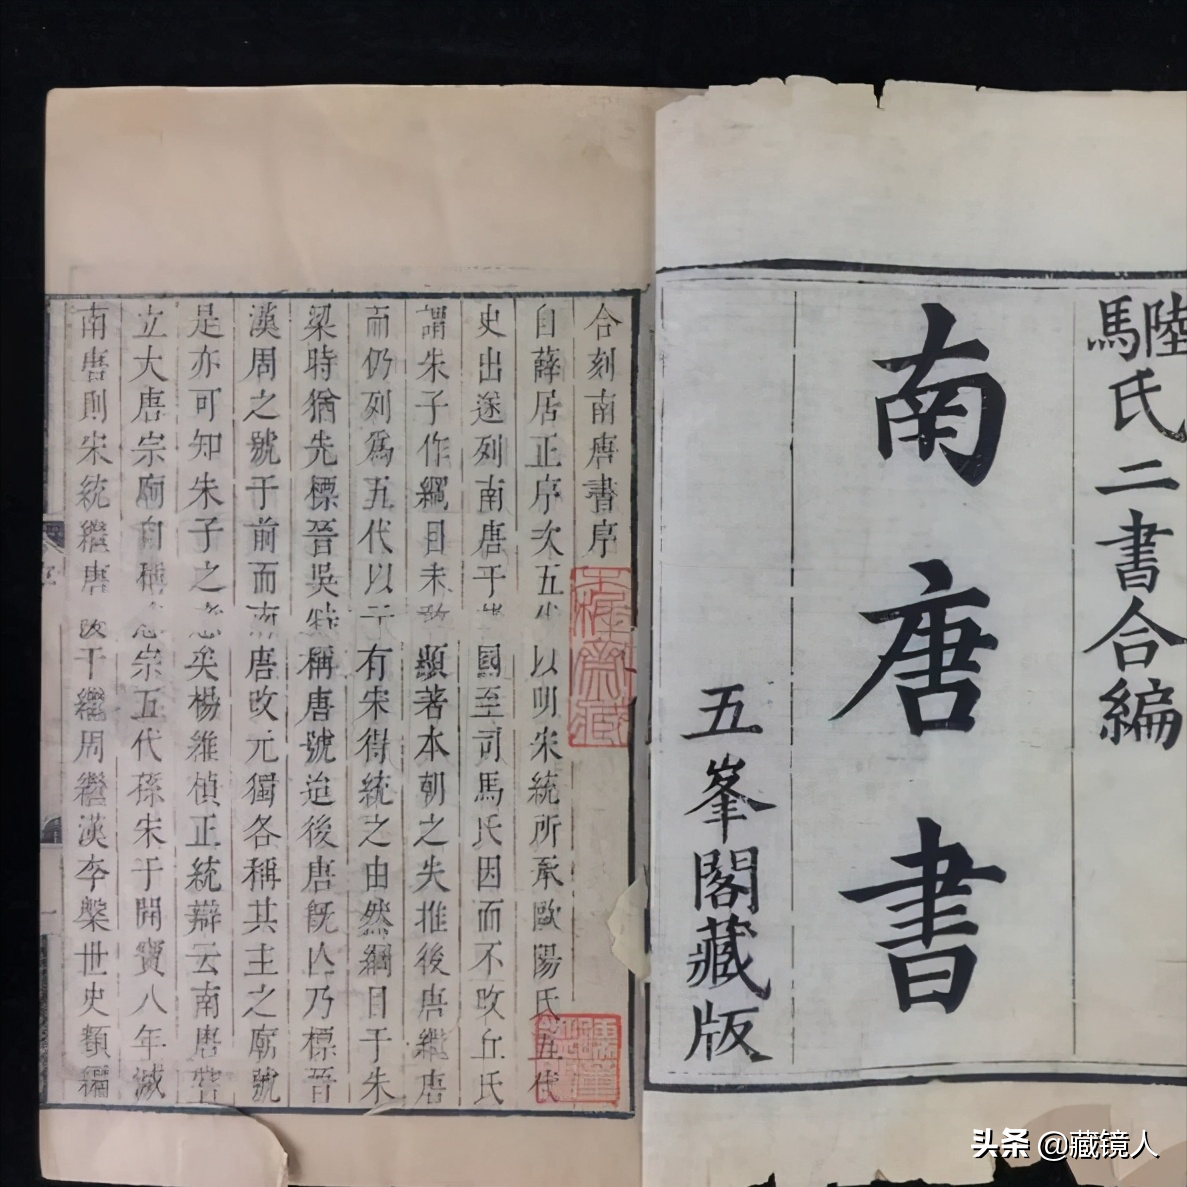 陸馬氏二書合編
南唐書
五峯閣藏版
合刻南唐書序
自薛居正序次五代以明宋統所承歐陽氏五代
史出遂列南唐于國至司馬氏因而不改丘氏
謂朱子作綱目未敢顯著本朝之失推後唐繼唐
而仍列爲五代以于有宋得統之由然綱目于朱
梁時猶先標晉吳稱唐號迨後唐旣亾乃標晉
漢周之號于前而南唐改元獨各稱其主之廟號
是亦可知朱子之意矣楊維楨正統辯云南唐嘗
立大唐宗廟自稱憲宗五代孫宋于開寶八年滅
南唐則宋統繼唐改于繼周繼漢李槃世史類編
頭条 @藏镜人